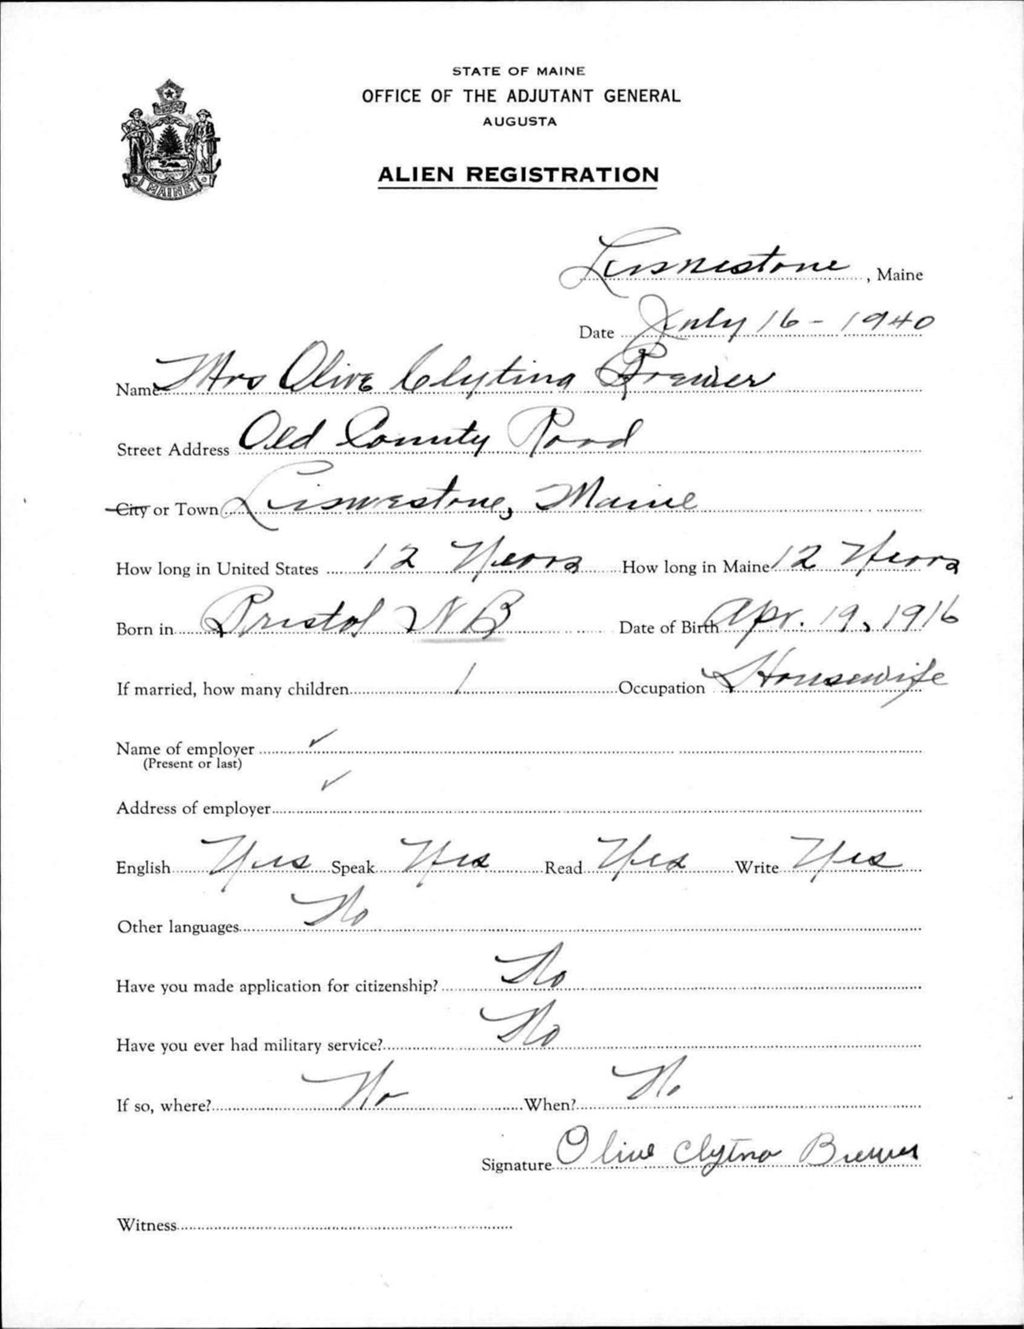 STATE OF MAINE
OFFICE OF THE ADJUTANT GENERAL
AUGUSTA
ALIEN REGISTRATION
MAINE
Limestone, Maine
Date July 16 - 1940
Name Mrs Olive Clytina Brewer
Street Address Old County Road
City or Town Limestone, Maine
How long in United States 12 Years How long in Maine 12 Years
Born in Bristol NB Date of Birth Apr. 19, 1916
If married, how many children 1 Occupation Housewife
Name of employer ✓
(Present or last)
Address of employer ✓
English Yes Speak Yes Read Yes Write Yes
Other languages No
Have you made application for citizenship? No
Have you ever had military service? No
If so, where? No When? No
Signature Olive Clytna Brewer
Witness